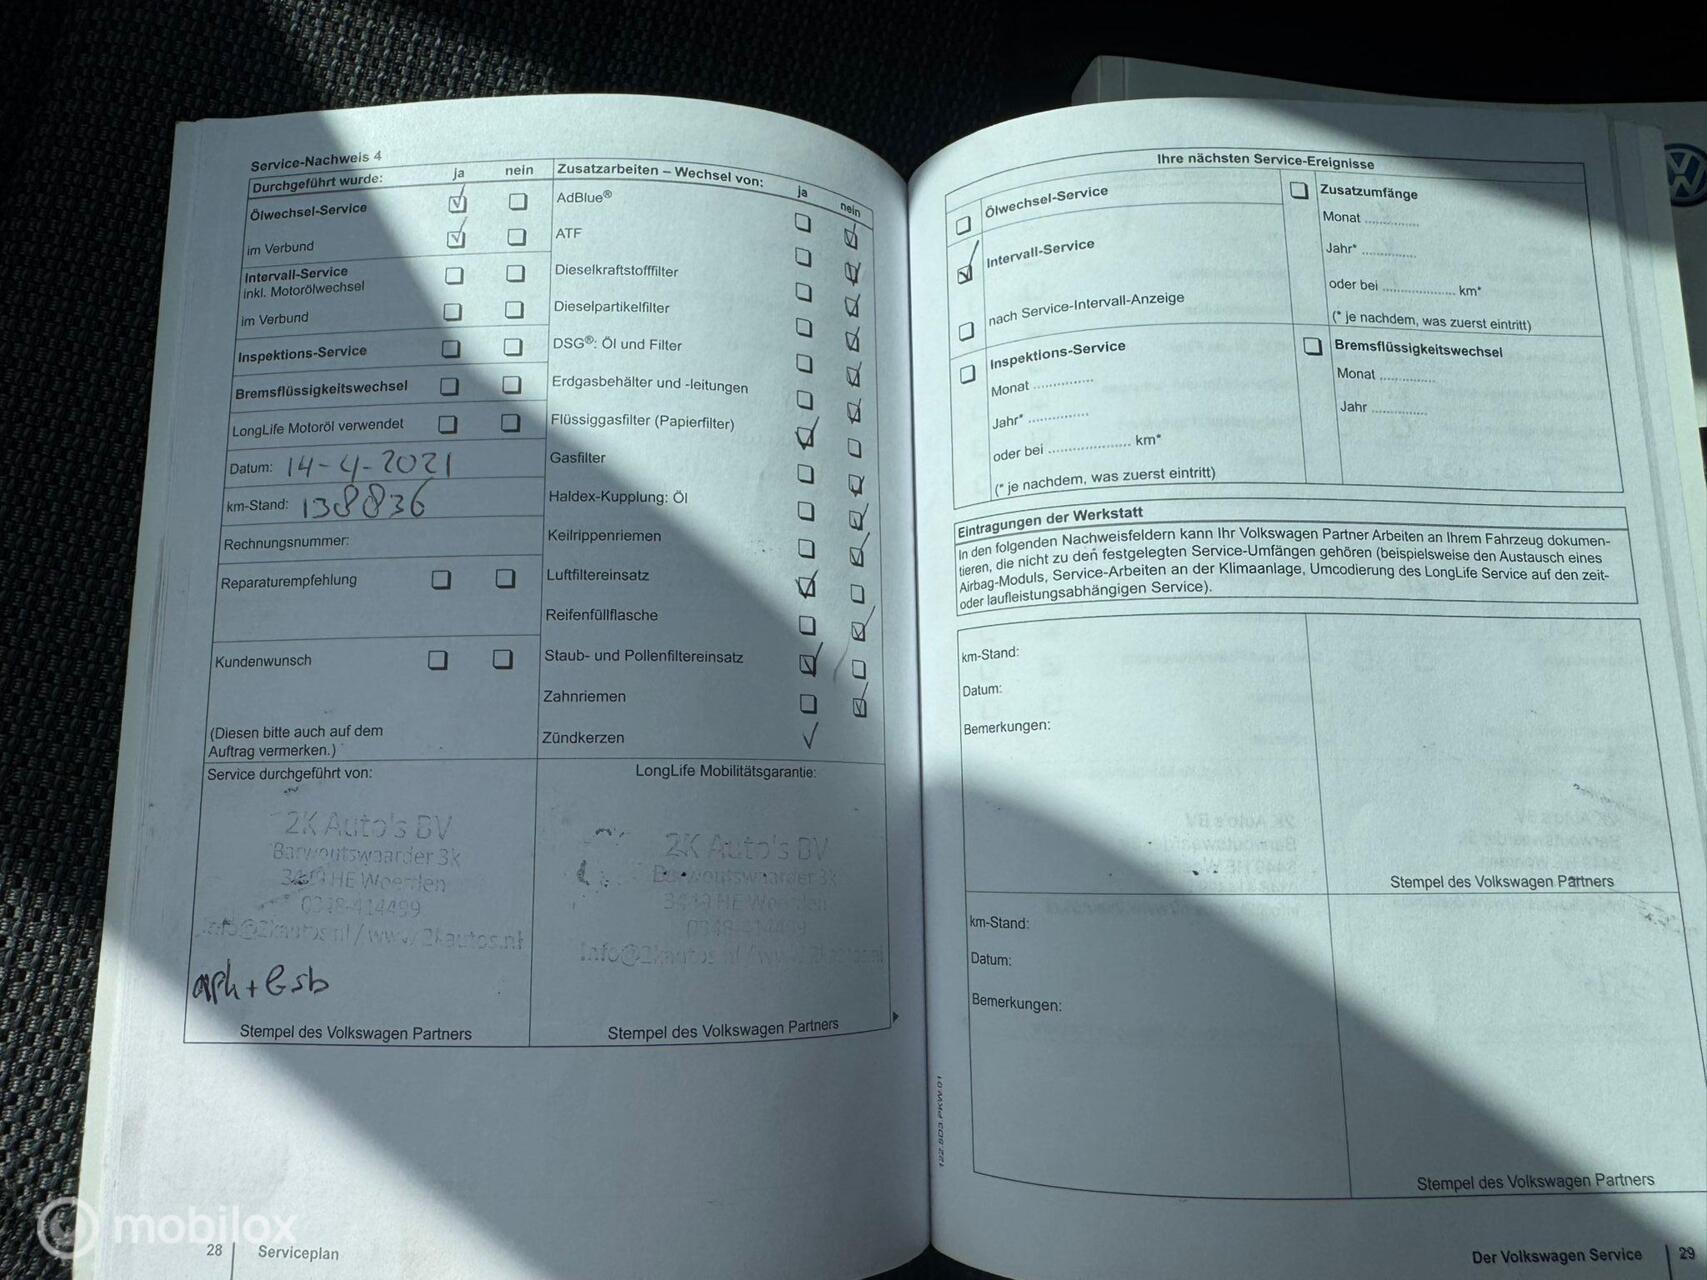 Service-Nachweis 4
Durchgeführt wurde: ja nein
Ölwechsel-Service
im Verbund
Intervall-Service
inkl. Motorölwechsel
im Verbund
Inspektions-Service
Bremsflüssigkeitswechsel
LongLife Motoröl verwendet
Datum: 14-4-2021
km-Stand: 138836
Rechnungsnummer:
Reparaturempfehlung
Kundenwunsch
(Diesen bitte auch auf dem
Auftrag vermerken.)
Zusatzarbeiten – Wechsel von: ja nein
AdBlue®
ATF
Dieselkraftstofffilter
Dieselpartikelfilter
DSG®: Öl und Filter
Erdgasbehälter und -leitungen
Flüssiggasfilter (Papierfilter)
Gasfilter
Haldex-Kupplung: Öl
Keilrippenriemen
Luftfiltereinsatz
Reifenfüllflasche
Staub- und Pollenfiltereinsatz
Zahnriemen
Zündkerzen
Service durchgeführt von:
2K Auto's BV
Barwoutswaarder 3k
3449 HE Woerden
0348-414499
info@2kautos.nl / www.2kautos.nl
Stempel des Volkswagen Partners
LongLife Mobilitätsgarantie:
2K Auto's BV
Barwoutswaarder 3k
3449 HE Woerden
0348-414499
Info@2kautos.nl / www.2kautos.nl
Stempel des Volkswagen Partners
28 Serviceplan
Ihre nächsten Service-Ereignisse
Ölwechsel-Service
Intervall-Service
nach Service-Intervall-Anzeige
Inspektions-Service
Monat ..............
Jahr* ..............
oder bei .................... km*
(* je nachdem, was zuerst eintritt)
Zusatzumfänge
Monat ..............
Jahr* ..............
oder bei .................... km*
(* je nachdem, was zuerst eintritt)
Bremsflüssigkeitswechsel
Monat ..............
Jahr ..............
Eintragungen der Werkstatt
In den folgenden Nachweisfeldern kann Ihr Volkswagen Partner Arbeiten an Ihrem Fahrzeug dokumen-
tieren, die nicht zu den festgelegten Service-Umfängen gehören (beispielsweise den Austausch eines
Airbag-Moduls, Service-Arbeiten an der Klimaanlage, Umcodierung des LongLife Service auf den zeit-
oder laufleistungsabhängigen Service).
km-Stand:
Datum:
Bemerkungen:
Stempel des Volkswagen Partners
km-Stand:
Datum:
Bemerkungen:
Stempel des Volkswagen Partners
122.5D3.PKW.01
Der Volkswagen Service 29
mobilox